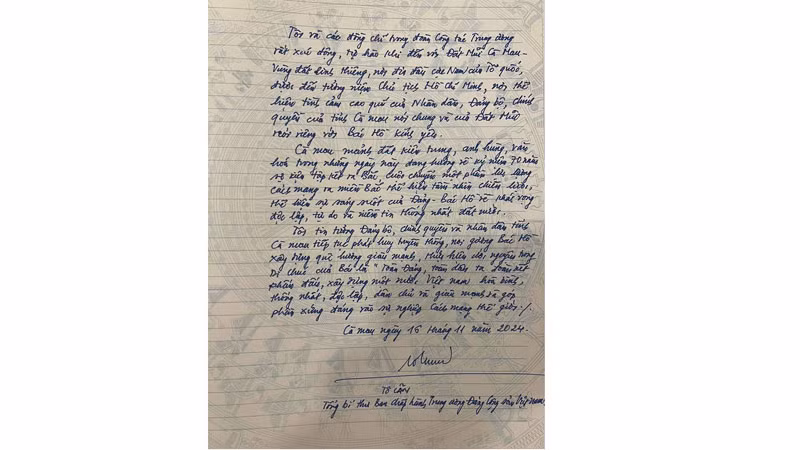 Tôi và các đồng chí trong đoàn Công tác Trung ương
rất xúc động, tự hào khi đến với Đất Mũi Cà Mau -
Vùng đất linh thiêng, nơi địa đầu cực Nam của Tổ quốc,
được đến tưởng niệm Chủ tịch Hồ Chí Minh, nơi thể
hiện tình cảm cao quí của Nhân dân, Đảng bộ, chính
quyền của tỉnh Cà Mau nói chung và của Đất Mũi
nói riêng với Bác Hồ kính yêu.
Cà Mau mảnh đất kiên trung, anh hùng, văn
hoá trong những ngày này đang hướng về kỷ niệm 70 năm
sự kiện tập kết ra Bắc, cuộc chuyển một phần lực lượng
cách mạng ra miền Bắc thể hiện tầm nhìn chiến lược,
thể hiện sự sáng suốt của Đảng - Bác Hồ về khát vọng
độc lập, tự do và niềm tin thống nhất đất nước.
Tôi tin tưởng Đảng bộ, chính quyền và nhân dân tỉnh
Cà Mau tiếp tục phát huy truyền thống, noi gương Bác Hồ
xây dựng quê hương giàu mạnh, thực hiện lời nguyện trong
Di chúc của Bác là "Toàn Đảng, toàn dân ta đoàn kết
phấn đấu, xây dựng một nước Việt Nam hòa bình,
thống nhất, độc lập, dân chủ và giàu mạnh và góp
phần xứng đáng vào sự nghiệp cách mạng thế giới./.
Cà Mau ngày 16 tháng 11 năm 2024.
Tô Lâm
Tổng bí thư Ban chấp hành Trung ương Đảng Cộng sản Việt Nam